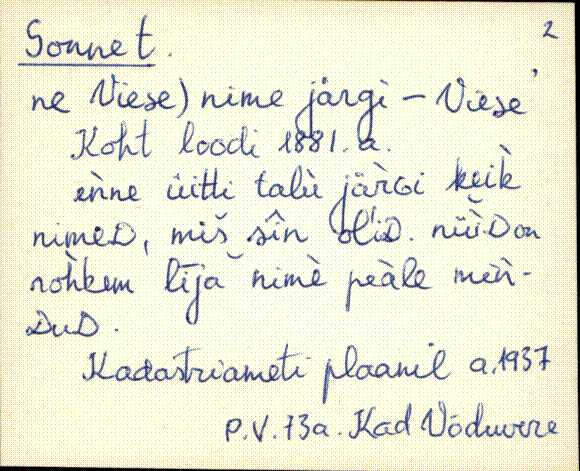 2
Sonnet.
ne Viese) nime järgi – Viese'
Koht loodi 1881. a.
ènne üitti talù järGi keik̀
nimeD, miš sîn ol'iD. nüìDon
rohkem līja nimè peàle meǹ-
DuD.
Kadastriameti plaanil a. 1937
P.V. 73a. Kad Võduvere